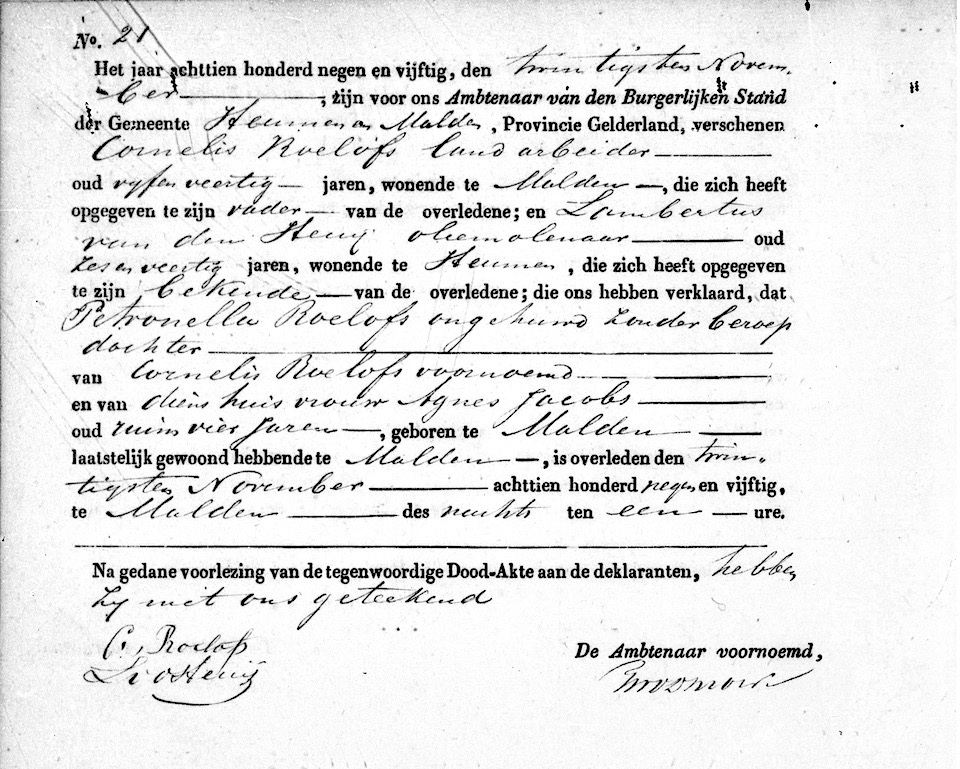 No. 21
Het jaar achttien honderd negen en vijftig, den twintigsten Novem-
ber, zijn voor ons Ambtenaar van den Burgerlijken Stand
der Gemeente Heumen en Malden, Provincie Gelderland, verschenen
Cornelis Roelofs landarbeider
oud vyf en veertig jaren, wonende te Malden, die zich heeft
opgegeven te zijn vader van de overledene; en Lambertus
van den oliemolenaar oud
zes en veertig jaren, wonende te Heumen, die zich heeft opgegeven
te zijn bekende van de overledene; die ons hebben verklaard, dat
Petronella Roelofs ongehuwd zonder beroep
dochter
van Cornelis Roelofs voornoemd
en van diens huisvrouw Agnes Jacobs
oud ruim vier Jaren, geboren te Malden
laatstelijk gewoond hebbende te Malden, is overleden den twin-
tigsten November achttien honderd negen en vijftig,
te Malden des nachts ten een ure.
Na gedane voorlezing van de tegenwoordige Dood-Akte aan de deklaranten, hebben
zy met ons geteekend
C. Roelofs
De Ambtenaar voornoemd,